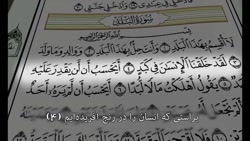 سُورَةُ الْبَلَدِ
لَا أُقْسِمُ بِهَٰذَا الْبَلَدِ ۝ وَأَنتَ حِلٌّ بِهَٰذَا الْبَلَدِ ۝ وَوَالِدٍ وَمَا وَلَدَ
۝ لَقَدْ خَلَقْنَا الْإِنسَانَ فِي كَبَدٍ ۝ أَيَحْسَبُ أَن لَّن يَقْدِرَ عَلَيْهِ
يَقُولُ أَهْلَكْتُ مَالًا لُّبَدًا ۝ أَيَحْسَبُ أَن لَّمْ يَرَهُ أَحَدٌ
براستی که انسان را در رنج آفریده‌ایم (۴)